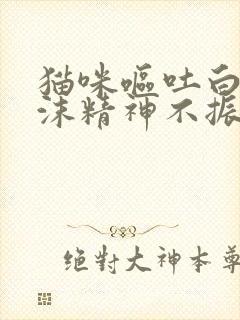 猫咪嘔吐白
沫精神不振
絕對大神本尊